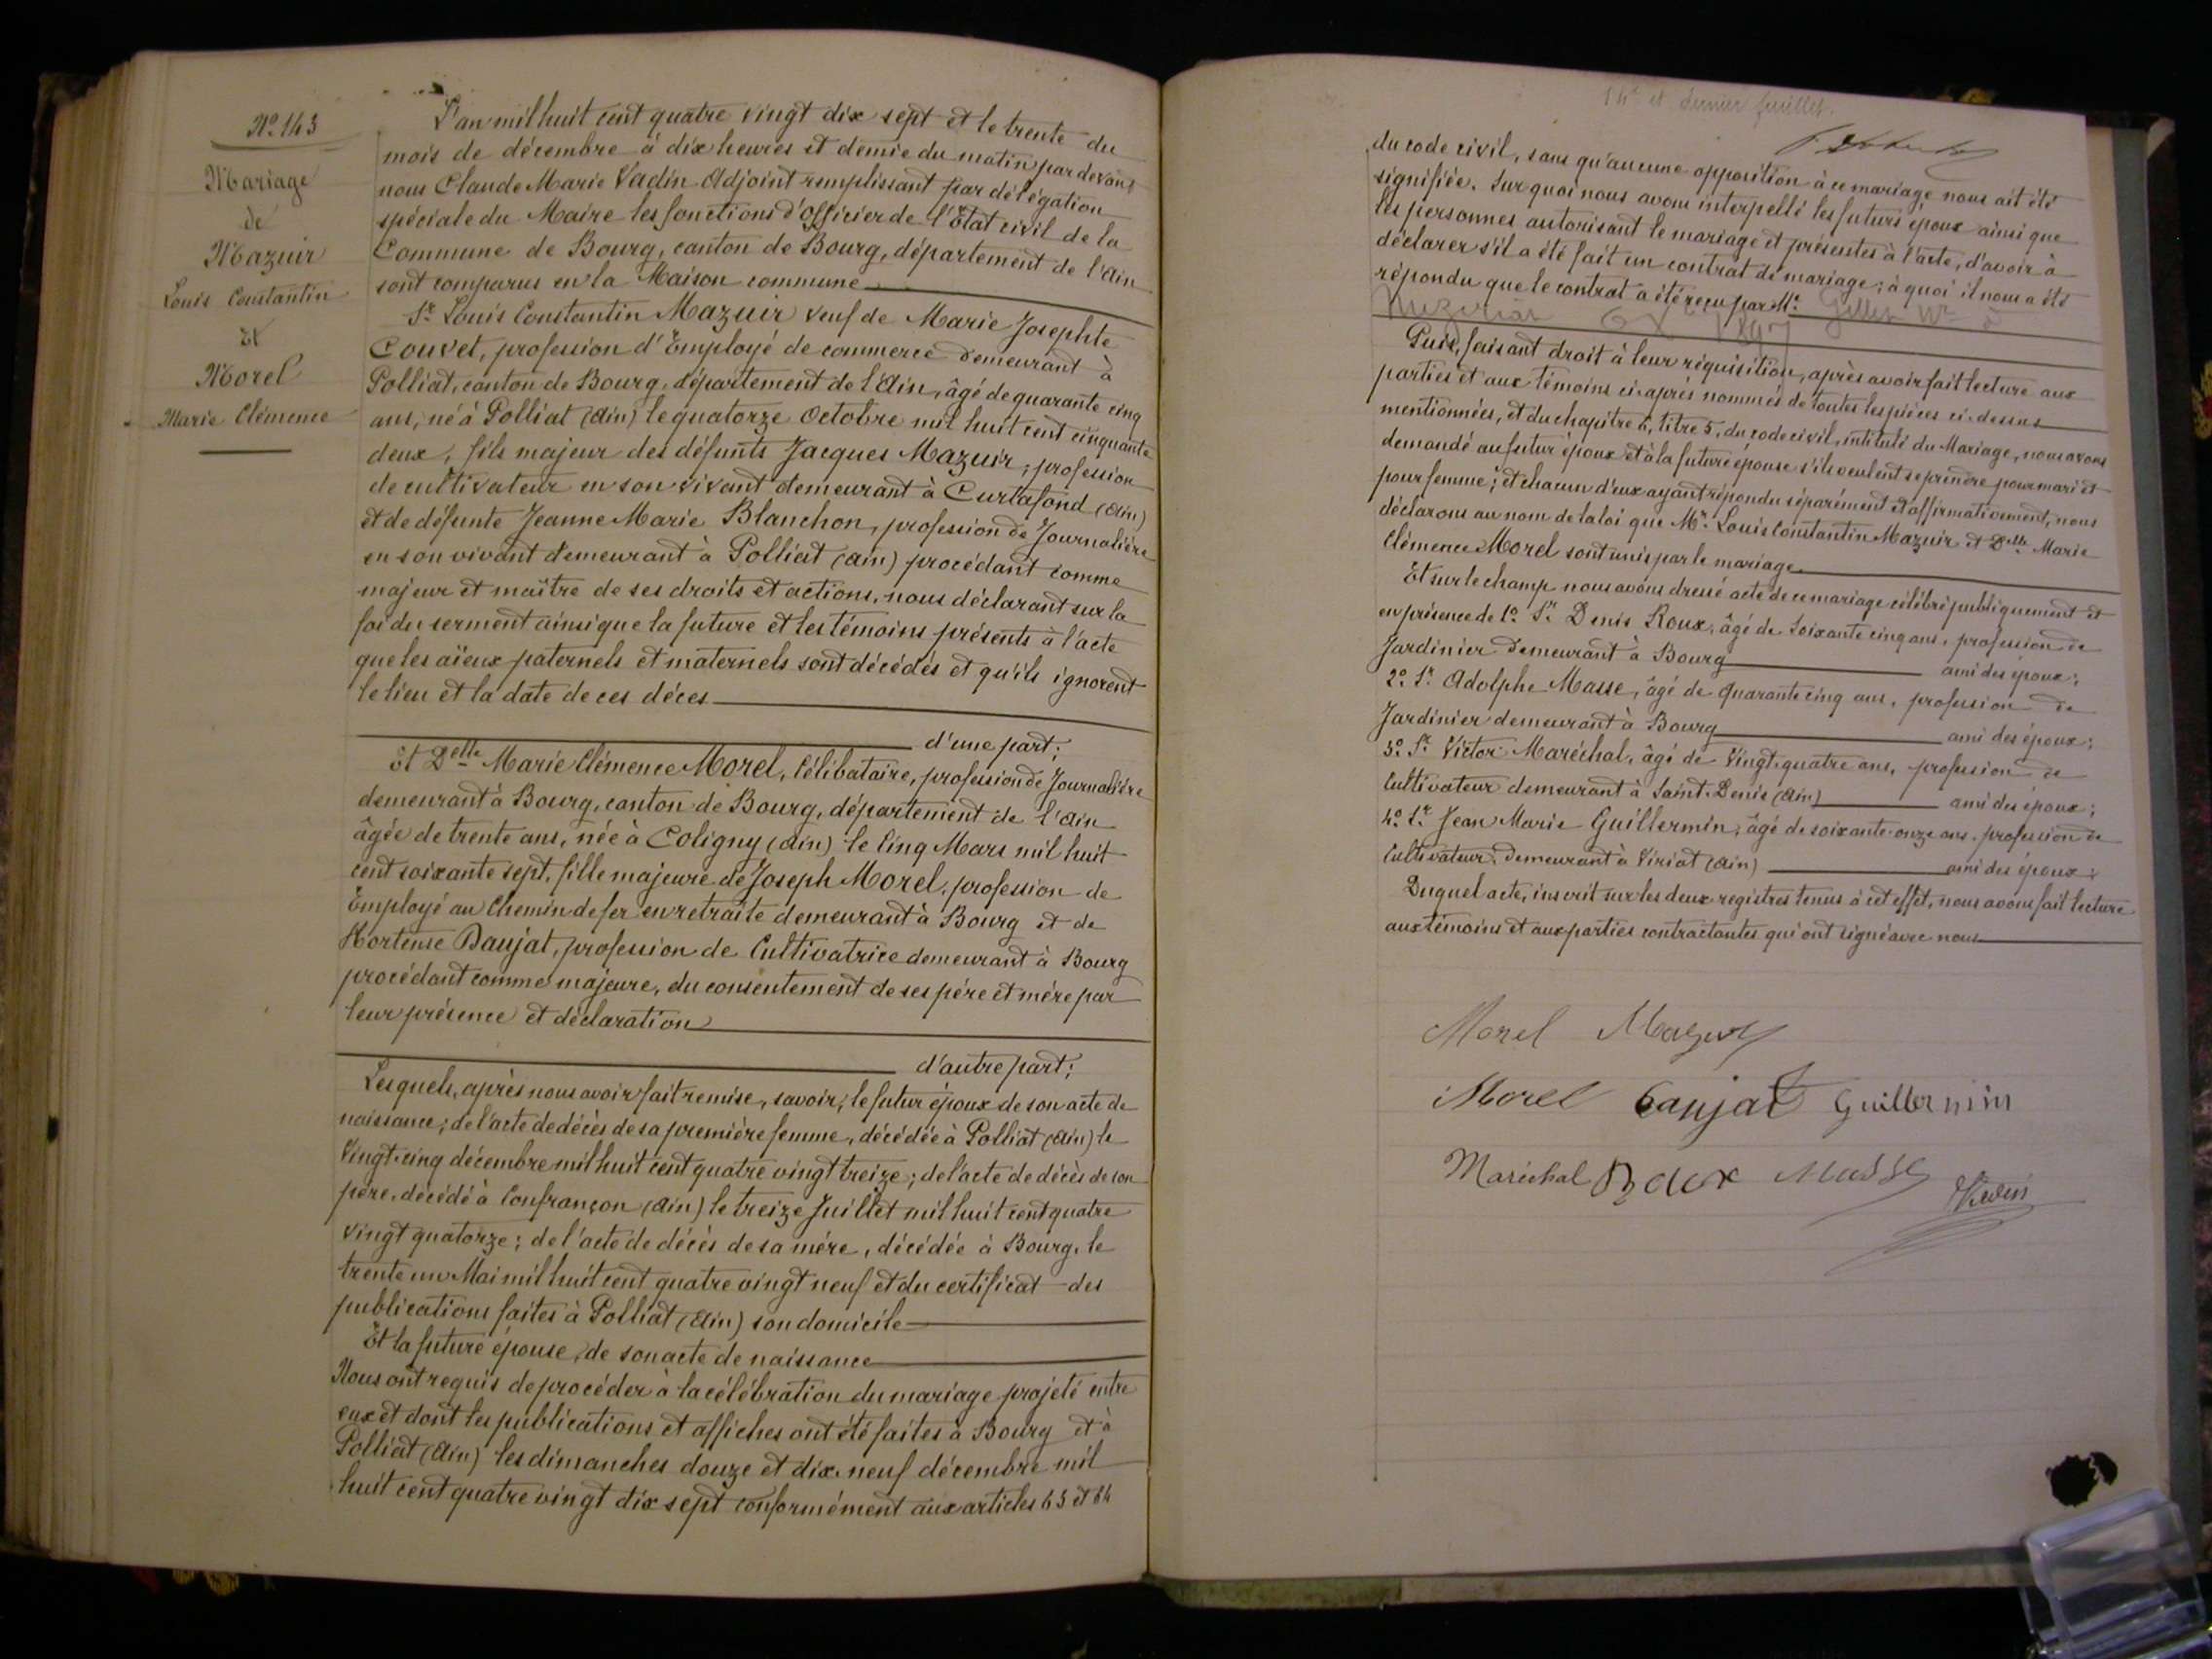 Nº 143
Mariage
de
Mazuir
Louis Constantin
Et
Morel
Marie Clémence
L'an mil huit cent quatre vingt dix sept et le trente du
mois de décembre à dix heures et demie du matin par devant
nous Claude Marie Vadin Adjoint remplissant par délégation
spéciale du Maire les fonctions d'officier de l'État civil de la
Commune de Bourg, canton de Bourg, département de l'Ain
sont comparus en la Maison commune
Sr Louis Constantin Mazuir veuf de Marie Josephte
Couvet, profession d'Employé de commerce demeurant à
Polliat, canton de Bourg, département de l'Ain, âgé de quarante cinq
ans, né à Polliat (Ain) le quatorze Octobre mil huit cent cinquante
deux, fils majeur des défunts Jacques Mazuir, profession
de cultivateur en son vivant demeurant à Curtafond (Ain)
et de défunte Jeanne Marie Blanchon, profession de Journalière
en son vivant demeurant à Polliat (Ain) procédant comme
majeur et maître de ses droits et actions, nous déclarant sur la
foi du serment ainsi que la future et les témoins présents à l'acte
que les aïeux paternels et maternels sont décédés et qu'ils ignorent
le lieu et la date de ces décès
d'une part;
Et Delle Marie Clémence Morel, Célibataire, profession de Journalière
demeurant à Bourg, canton de Bourg, département de l'Ain
âgée de trente ans, née à Coligny (Ain) le Cinq Mars mil huit
cent soixante sept, fille majeure de Joseph Morel, profession de
Employé au Chemin de fer en retraite demeurant à Bourg et de
Hortense Daujat, profession de Cultivatrice demeurant à Bourg
procédant comme majeure, du consentement de ses père et mère par
leur présence et déclaration
d'autre part;
Lesquels, après nous avoir fait remise, savoir; le futur époux de son acte de
naissance; de l'acte de décès de sa première femme, décédée à Polliat (Ain) le
Vingt-cinq décembre mil huit cent quatre vingt treize; de l'acte de décès de son
père, décédé à Confrançon (Ain) le treize Juillet mil huit cent quatre
vingt quatorze; de l'acte de décès de sa mère, décédée à Bourg, le
trente un Mai mil huit cent quatre vingt neuf et du certificat des
publications faites à Polliat (Ain) son domicile
Et la future épouse, de son acte de naissance
Nous ont requis de procéder à la célébration du mariage projeté entre
eux et dont les publications et affiches ont été faites à Bourg et à
Polliat (Ain) les dimanches douze et dix-neuf décembre mil
huit cent quatre vingt dix sept conformément aux articles 63 et 64
et dernier feuillet.
du code civil, sans qu'aucune opposition à ce mariage nous ait été
signifiée. Sur quoi nous avons interpellé les futurs époux ainsi que
les personnes autorisant le mariage et présentes à l'acte, d'avoir à
déclarer s'il a été fait un contrat de mariage; à quoi il nous a été
répondu que le contrat a été reçu par Me
1897
Puis, faisant droit à leur réquisition, après avoir fait lecture aux
parties et aux témoins ci-après nommés de toutes les pièces ci-dessus
mentionnées, et du chapitre 6, titre 5, du code civil, intitulé du Mariage, nous avons
demandé au futur époux et à la future épouse s'ils veulent se prendre pour mari et
pour femme; et chacun d'eux ayant répondu séparément et affirmativement, nous
déclarons au nom de la loi que Mr Louis Constantin Mazuir et Delle Marie
Clémence Morel sont unis par le mariage.
Et sur le champ nous avons dressé acte de ce mariage célébré publiquement et
en présence de 1º Sr Denis Roux, âgé de Soixante cinq ans, profession de
Jardinier demeurant à Bourg ami des époux;
2º Sr Adolphe Masse, âgé de Quarante cinq ans, profession de
Jardinier demeurant à Bourg ami des époux;
3º Sr Victor Maréchal, âgé de Vingt-quatre ans, profession de
Cultivateur demeurant à Saint-Denis (Ain) ami des époux;
4º Sr Jean Marie Guillermin, âgé de soixante-onze ans, profession de
Cultivateur, demeurant à Viriat (Ain) ami des époux;
Duquel acte, inscrit sur les deux registres tenus à cet effet, nous avons fait lecture
aux témoins et aux parties contractantes qui ont signé avec nous
Morel Mazuir
Morel Daujat Guillermin
Maréchal Roux Masse
Vadin